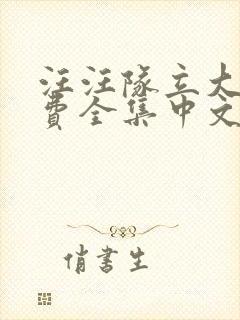 汪汪隊立大
費全集中文
俏書生